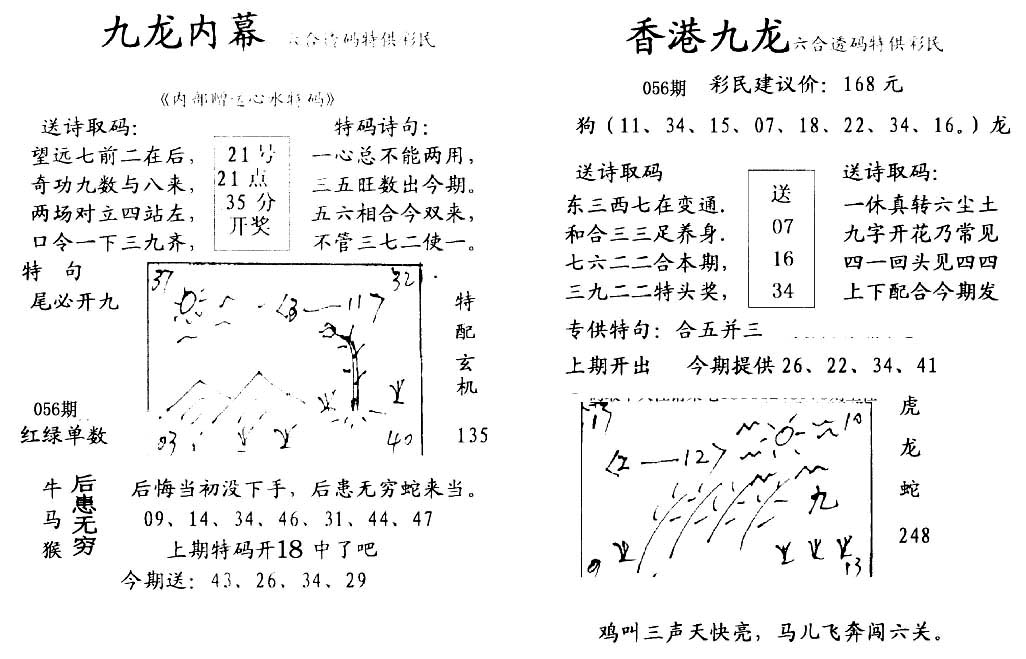 九龙内幕 六合透码特供彩民
《内部赠送心水特码》
送诗取码：
望远七前二在后，
奇功九数与八来，
两场对立四站左，
口令一下三九齐，
21号
21点
35分
开奖
特码诗句：
一心总不能两用，
三五旺数出今期。
五六相合今双来，
不管三七二使一。
特句
尾必开九
37
32
8—11
03
40
特
配
玄
机
135
056期
红绿单数
牛
马
猴
后患无穷
后悔当初没下手，后患无穷蛇来当。
09、14、34、46、31、44、47
上期特码开18中了吧
今期送：43、26、34、29
香港九龙 六合透码特供彩民
056期 彩民建议价：168元
狗（11、34、15、07、18、22、34、16。）龙
送诗取码
东三西七在变通.
和合三三足养身.
七六二二合本期，
三九二二特头奖，
送
07
16
34
送诗取码：
一休真转六尘土
九字开花乃常见
四一回头见四四
上下配合今期发
专供特句：合五并三
上期开出 今期提供26、22、34、41
13
10
2—12
九
9
13
虎
龙
蛇
248
鸡叫三声天快亮，马儿飞奔闯六关。